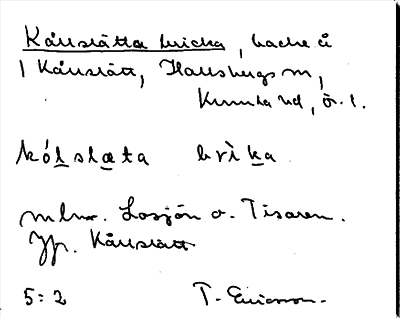 Kårstätta bricka, backe å
1 Kårstätt, Hallsbergs sn,
Kumla hd, ö. l.
kó̱lslæta brìḵa
mlnr. Losjön o. Tisaren.
Jfr. Kårstätt
5:2 T. Ericsson.